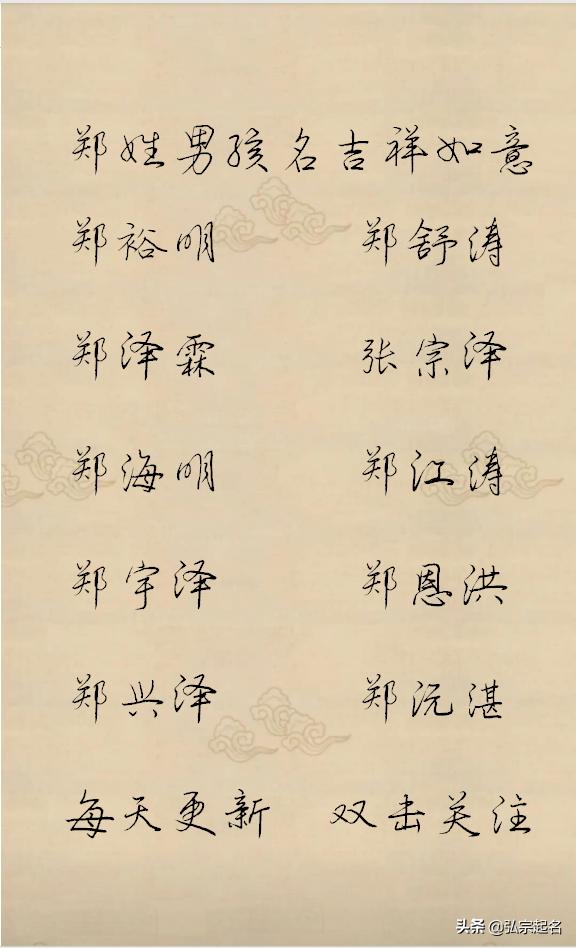 郑姓男孩名吉祥如意
郑裕明 郑舒涛
郑泽霖 张宗泽
郑海明 郑江涛
郑宇泽 郑恩洪
郑兴泽 郑沅湛
每天更新 双击关注
头条 @弘宗起名